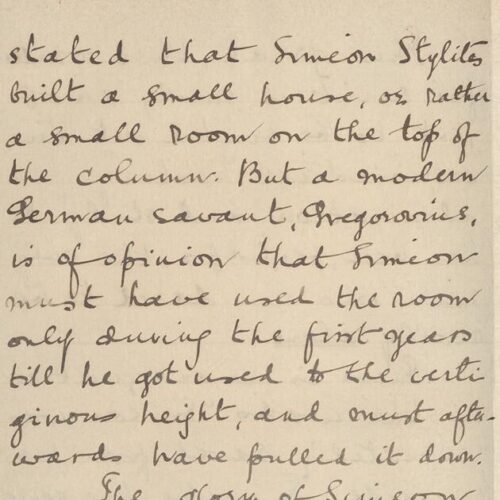 stated that Simeon Stylites
built a small house, or rather
a small room on the top of
the column. But a modern
German savant, Gregorovius,
is of opinion that Simeon
must have used the room
only during the first years
till he got used to the verti
ginous height, and must after-
wards have pulled it down.
The glory of Simeon